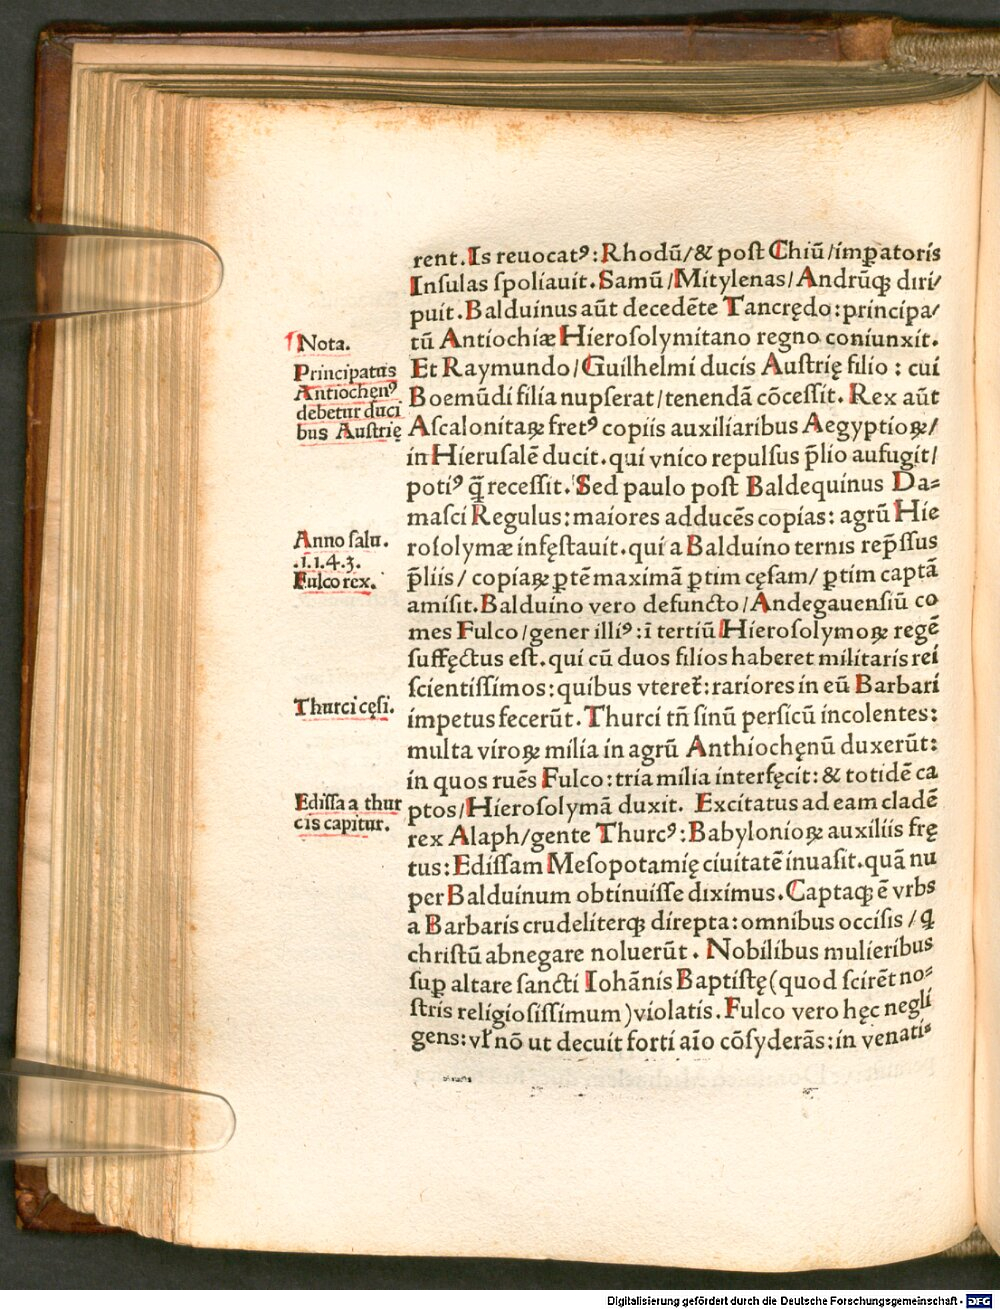 rent. Is reuocatꝰ: Rhodū/& poſt Chiū/imꝑatoris
Inſulas ſpoliauit. Samū/Mitylenas/Andrūqꝫ diri/
puit. Balduinus aūt decedēte Tancrędo: principa/
tū Antiochiæ Hieroſolymitano regno coniunxit.
Et Raymundo/Guilhelmi ducis Auſtrię filio: cui
Boemūdi filia nupſerat/tenendā cōceſſit. Rex aūt
Aſcalonitaꝝ fretꝰ copiis auxiliaribus Aegyptioꝝ/
in Hieruſalē ducit. qui vnico repulſus p̄lio aufugit/
potiꝰ q̄ receſſit. Sed paulo poſt Baldequinus Da=
maſci Regulus: maiores adducēs copias: agrū Hie
roſolymæ infęſtauit. qui a Balduino ternis rep̄ſſus
p̄liis/ copiaꝝ ꝑtē maximā ꝑtim cęſam/ ꝑtim captā
amiſit. Balduino vero defuncto/Andegauenſiū co
mes Fulco/gener illiꝰ: ī tertiū Hieroſolymoꝝ regē
ſuffęctus eſt. qui cū duos filios haberet militaris rei
ſcientiſſimos: quibus vteret᷑: rariores in eū Barbari
impetus fecerūt. Thurci tñ ſinū perſicū incolentes:
multa viroꝝ milia in agrū Anthiochęnū duxerūt:
in quos ruēs Fulco: tria milia interfęcit: & totidē ca
ptos/Hieroſolymā duxit. Excitatus ad eam cladē
rex Alaph/gente Thurcꝰ: Babylonioꝝ auxiliis frę
tus: Ediſſam Meſopotamię ciuitatē inuaſit. quā nu
per Balduinum obtinuiſſe diximus. Captaqꝫ ē vrbs
a Barbaris crudeliterqꝫ direpta: omnibus occiſis / ꝗ
chriſtū abnegare noluerūt. Nobilibus mulieribus
ſuꝑ altare ſancti Iohānis Baptiſtę (quod ſcirēt no=
ſtris religioſiſſimum) violatis. Fulco vero hęc negli
gens: vł nō ut decuit forti aīo cōſyderās: in venati=
¶Nota.
Principatus
Antiochęnꝰ
debetur duci
bus Auſtrię
Anno ſalu.
.1.1.4.3.
Fulco rex.
Thurci cęſi.
Ediſſa a thur
cis capitur.
Digitalisierung gefördert durch die Deutsche Forschungsgemeinschaft - DFG